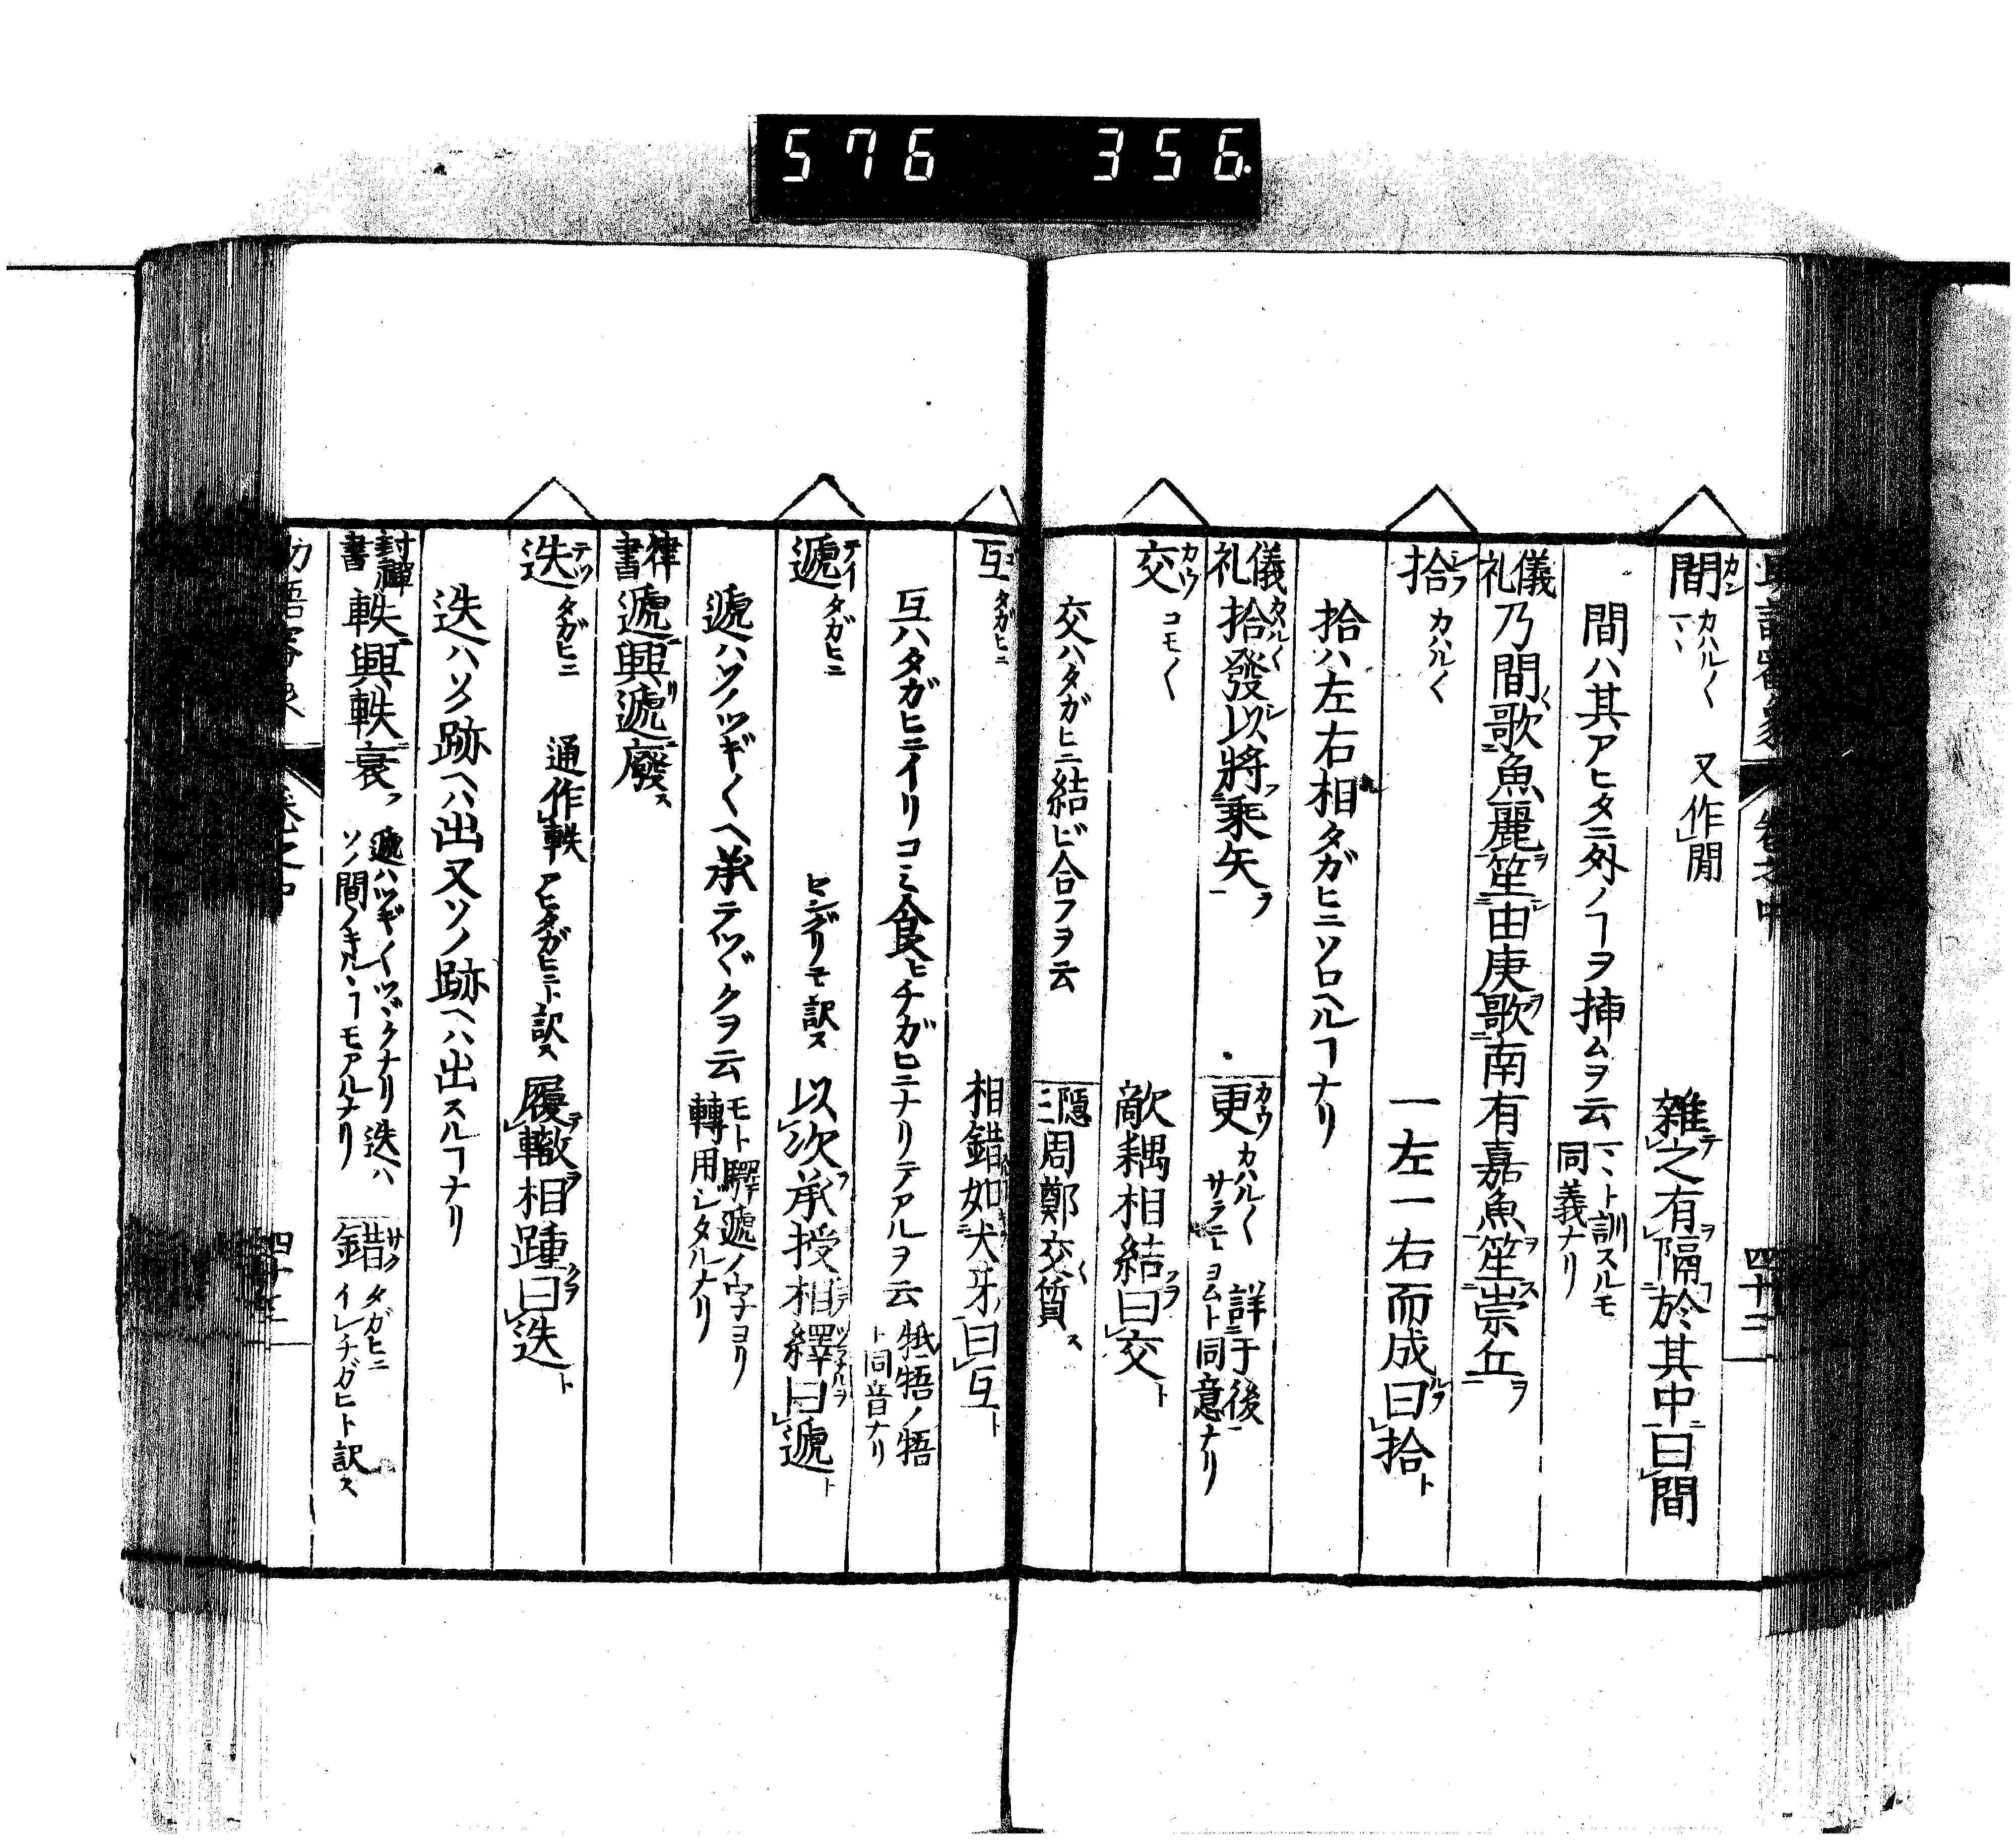 576 356.
四十二
間 カン カハル〱 一〻 又作閒 雜テ之有ヲ隔フ於其中ニ曰間
間ハ其アヒタニ外ノヿヲ挿ムヲ云 一〻ト訓スルモ同義ナリ
儀礼 乃間〱歌魚麗ヲ笙シ由庚ヲ歌南有嘉魚ヲ笙ス崇丘ヲ
拾 カハル〱 一左一右而成ルヲ曰拾ト
拾ハ左右相タガヒニソロヘルヿナリ
儀礼 拾發シ以將フ乘矢ヲ 更 カウ カハル〱 サラニトヨムト同意ナリ 詳于後
交 カウ コモ〱 敵耦相結フヲ曰交ト
交ハタガヒニ結ビ合フヲ云 隠三 周鄭交〱質ス
互 タガヒニ 相錯如犬牙曰互ト
互ハタガヒニイリコミ食ヒチガヒニナリテアルヲ云 牴牾ノ牾ト同音ナリ
遞 テイ タガヒニ 訳ス 以次ヲ承授相繹曰遞ト
遞ハソノツギ〱ヘ承テツヾクヲ云 モト驛遞ノ字ヨリ轉用シタルナリ
律書 遞ニ興リ遞ニ廢ス
迭 テツ タガヒニ 通作軼 アヒタガヒニト訳ス 履轍ヲ相踵クヲ曰迭ト
迭ハソノ跡ヘハ出又ソノ跡ヘハ出スルヿナリ
封禪書 軼ニ興軼ニ衰フ 遞ハツギ〱ツヾクナリ迭ハソノ間ノキルヽヿモアルナリ 錯 サク タガヒニ イレチガヒト訳ス